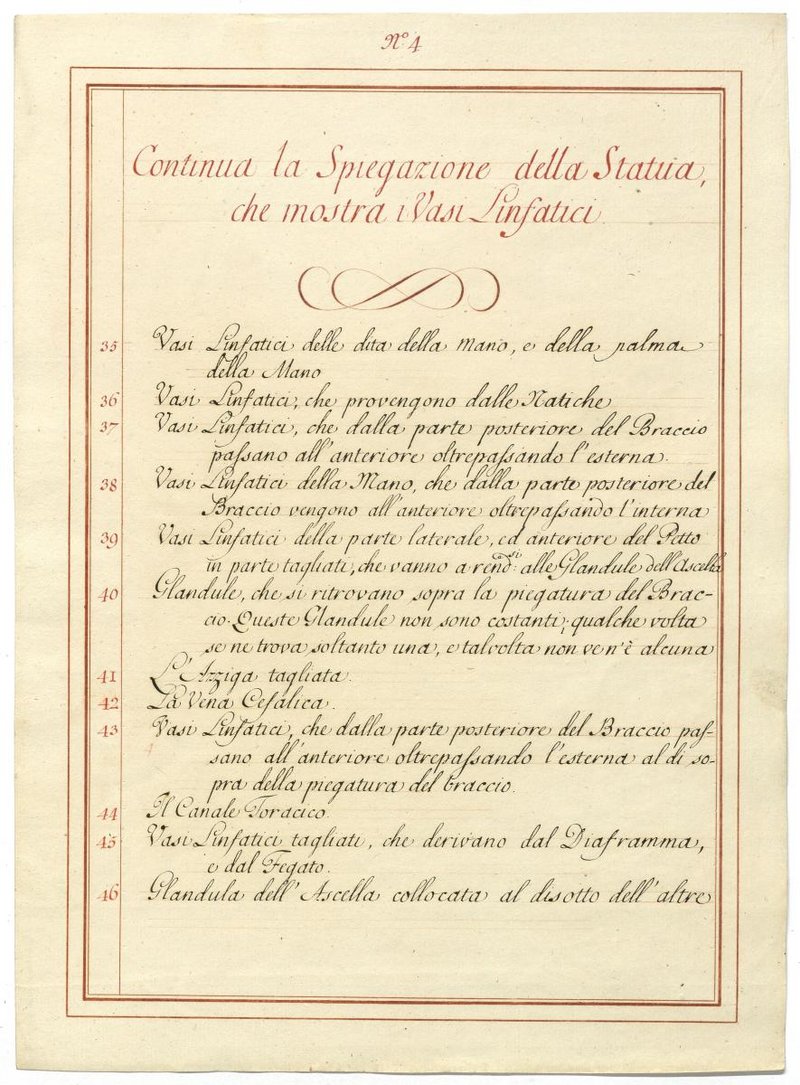 N.º 4
Continua la Spiegazione della Statua,
che mostra i Vasi Linfatici
35 Vasi Linfatici delle dita della mano, e della palma
della Mano
36 Vasi Linfatici, che provengono dalle Natiche
37 Vasi Linfatici, che dalla parte posteriore del Braccio
paſsano all'anteriore oltrepaſsando l'esterna.
38 Vasi Linfatici della Mano, che dalla parte posteriore del
Braccio vengono all'anteriore oltrepaſsando l'interna
39 Vasi Linfatici della parte laterale, ed anteriore del Petto
in parte tagliati, che vanno a rend.si alle Glandule dell'Ascella
40 Glandule, che si ritrovano sopra la piegatura del Brac-
cio. Queste Glandule non sono costanti; qualche volta
se ne trova soltanto una, e talvolta non ve n'è alcuna
41 L'Azziga tagliata.
42 La Vena Cefalica.
43 Vasi Linfatici, che dalla parte posteriore del Braccio paſ-
sano all'anteriore oltrepaſsando l'esterna al di so-
pra della piegatura del braccio.
44 Il Canale Toracico.
45 Vasi Linfatici tagliati, che derivano dal Diaframma,
e dal Fegato.
46 Glandula dell'Ascella collocata al disotto dell'altre